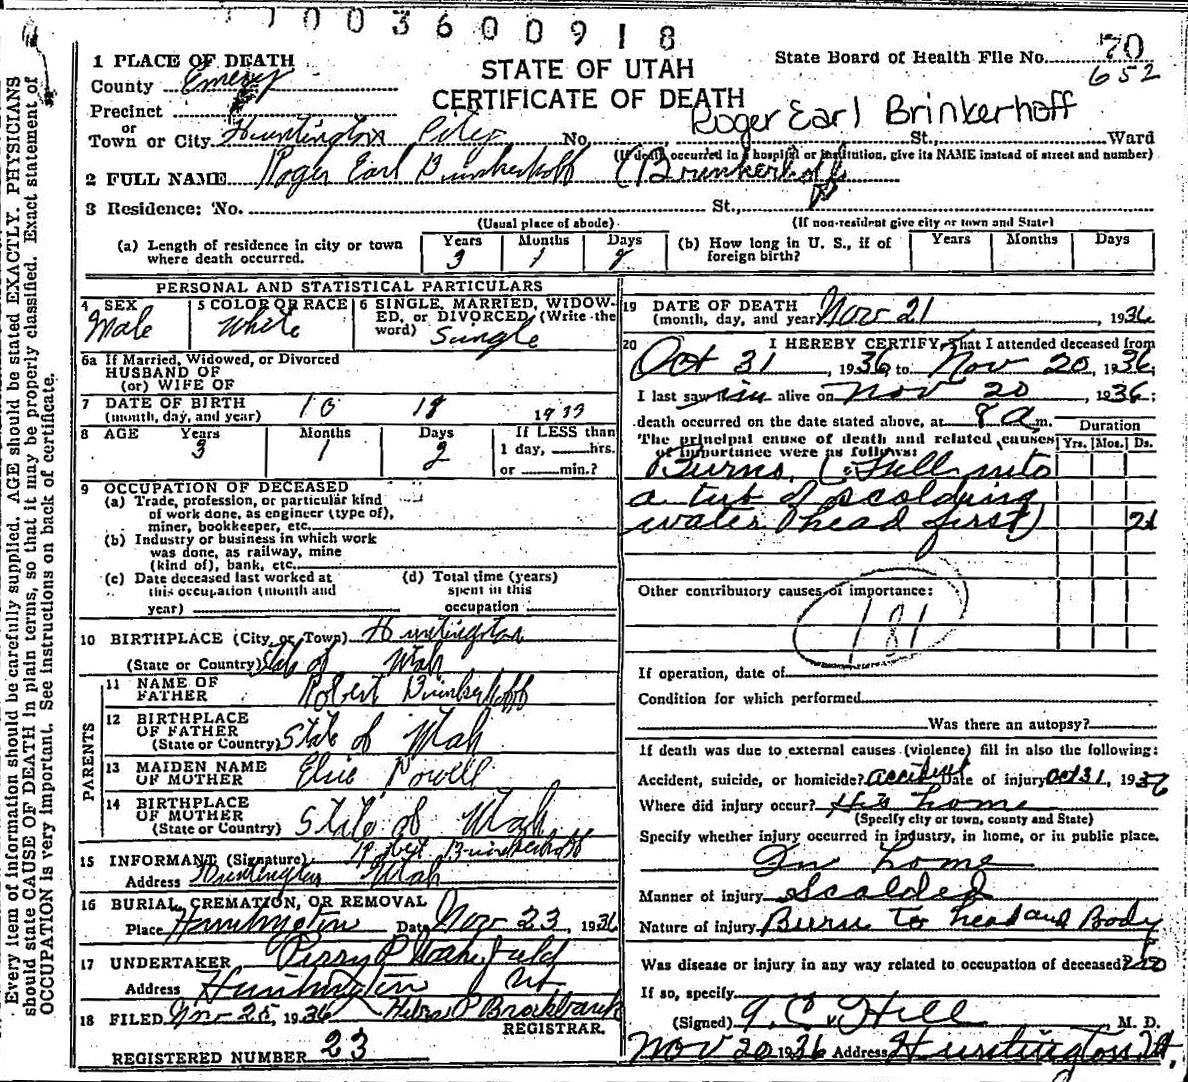 11003600918
1 PLACE OF DEATH
County Emery
Precinct
or
Town or City Huntington City No. St., Ward
STATE OF UTAH
CERTIFICATE OF DEATH
State Board of Health File No. 70
652
Roger Earl Brinkerhoff
(If death occurred in a hospital or institution, give its NAME instead of street and number)
2 FULL NAME Roger Earl Brinkerhoff (Brinkerhoff)
3 Residence: No. St.,
(Usual place of abode) (If non-resident give city or town and State)
(a) Length of residence in city or town where death occurred. Years 3 Months 1 Days 2
(b) How long in U. S., if of foreign birth? Years Months Days
PERSONAL AND STATISTICAL PARTICULARS
4 SEX Male
5 COLOR OR RACE White
6 SINGLE, MARRIED, WIDOWED, or DIVORCED, (Write the word) Single
6a If Married, Widowed, or Divorced
HUSBAND OF
(or) WIFE OF
7 DATE OF BIRTH
(month, day, and year) 10 18 1933
8 AGE Years 3 Months 1 Days 2
If LESS than
1 day, hrs.
or min.?
9 OCCUPATION OF DECEASED
(a) Trade, profession, or particular kind
of work done, as engineer (type of),
miner, bookkeeper, etc.
(b) Industry or business in which work
was done, as railway, mine
(kind of), bank, etc.
(c) Date deceased last worked at
this occupation (month and
year)
(d) Total time (years)
spent in this
occupation
10 BIRTHPLACE (City, or Town) Huntington
(State or Country) State of Utah
PARENTS
11 NAME OF
FATHER Robert Brinkerhoff
12 BIRTHPLACE
OF FATHER
(State or Country) State of Utah
13 MAIDEN NAME
OF MOTHER Elsie Powell
14 BIRTHPLACE
OF MOTHER
(State or Country) State of Utah
15 INFORMANT (Signature) Robert Brinkerhoff
Address Huntington Utah
16 BURIAL, CREMATION, OR REMOVAL
Place Huntington Date Nov 23, 1936
17 UNDERTAKER Perry P Wakefield
Address Huntington Ut.
18 FILED Nov 25, 1936 P Brockbank
REGISTRAR.
REGISTERED NUMBER 23
19 DATE OF DEATH
(month, day, and year) Nov 21, 1936
20 I HEREBY CERTIFY, That I attended deceased from
Oct 31, 1936, to Nov 20, 1936,
I last saw him alive on Nov 20, 1936;
death occurred on the date stated above, at 8 a m.
The principal cause of death and related causes
of importance were as follows:
Duration
Yrs. Mos. Ds.
Burns. (Fell into
a tub of scolding
water (head first) 21
Other contributory causes of importance:
181
If operation, date of
Condition for which performed
Was there an autopsy?
If death was due to external causes (violence) fill in also the following:
Accident, suicide, or homicide? accident Date of injury Oct 31, 1936
Where did injury occur? His home
(Specify city or town, county and State)
Specify whether injury occurred in industry, in home, or in public place.
In home
Manner of injury Scalded
Nature of injury Burn to head and Body
Was disease or injury in any way related to occupation of deceased? no
If so, specify
(Signed) Hill M. D.
Nov 20 1936 Address Huntington, Ut.
Every item of information should be carefully supplied. AGE should be stated EXACTLY. PHYSICIANS
should state CAUSE OF DEATH in plain terms, so that it may be properly classified. Exact statement of
OCCUPATION is very important. See instructions on back of certificate.